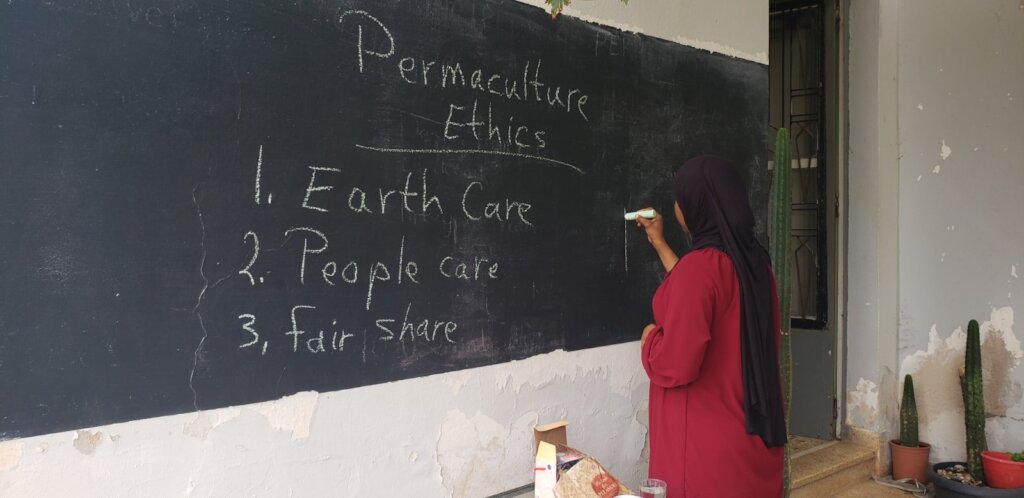 Permaculture
Ethics
1. Earth Care
2. People care
3, fair share